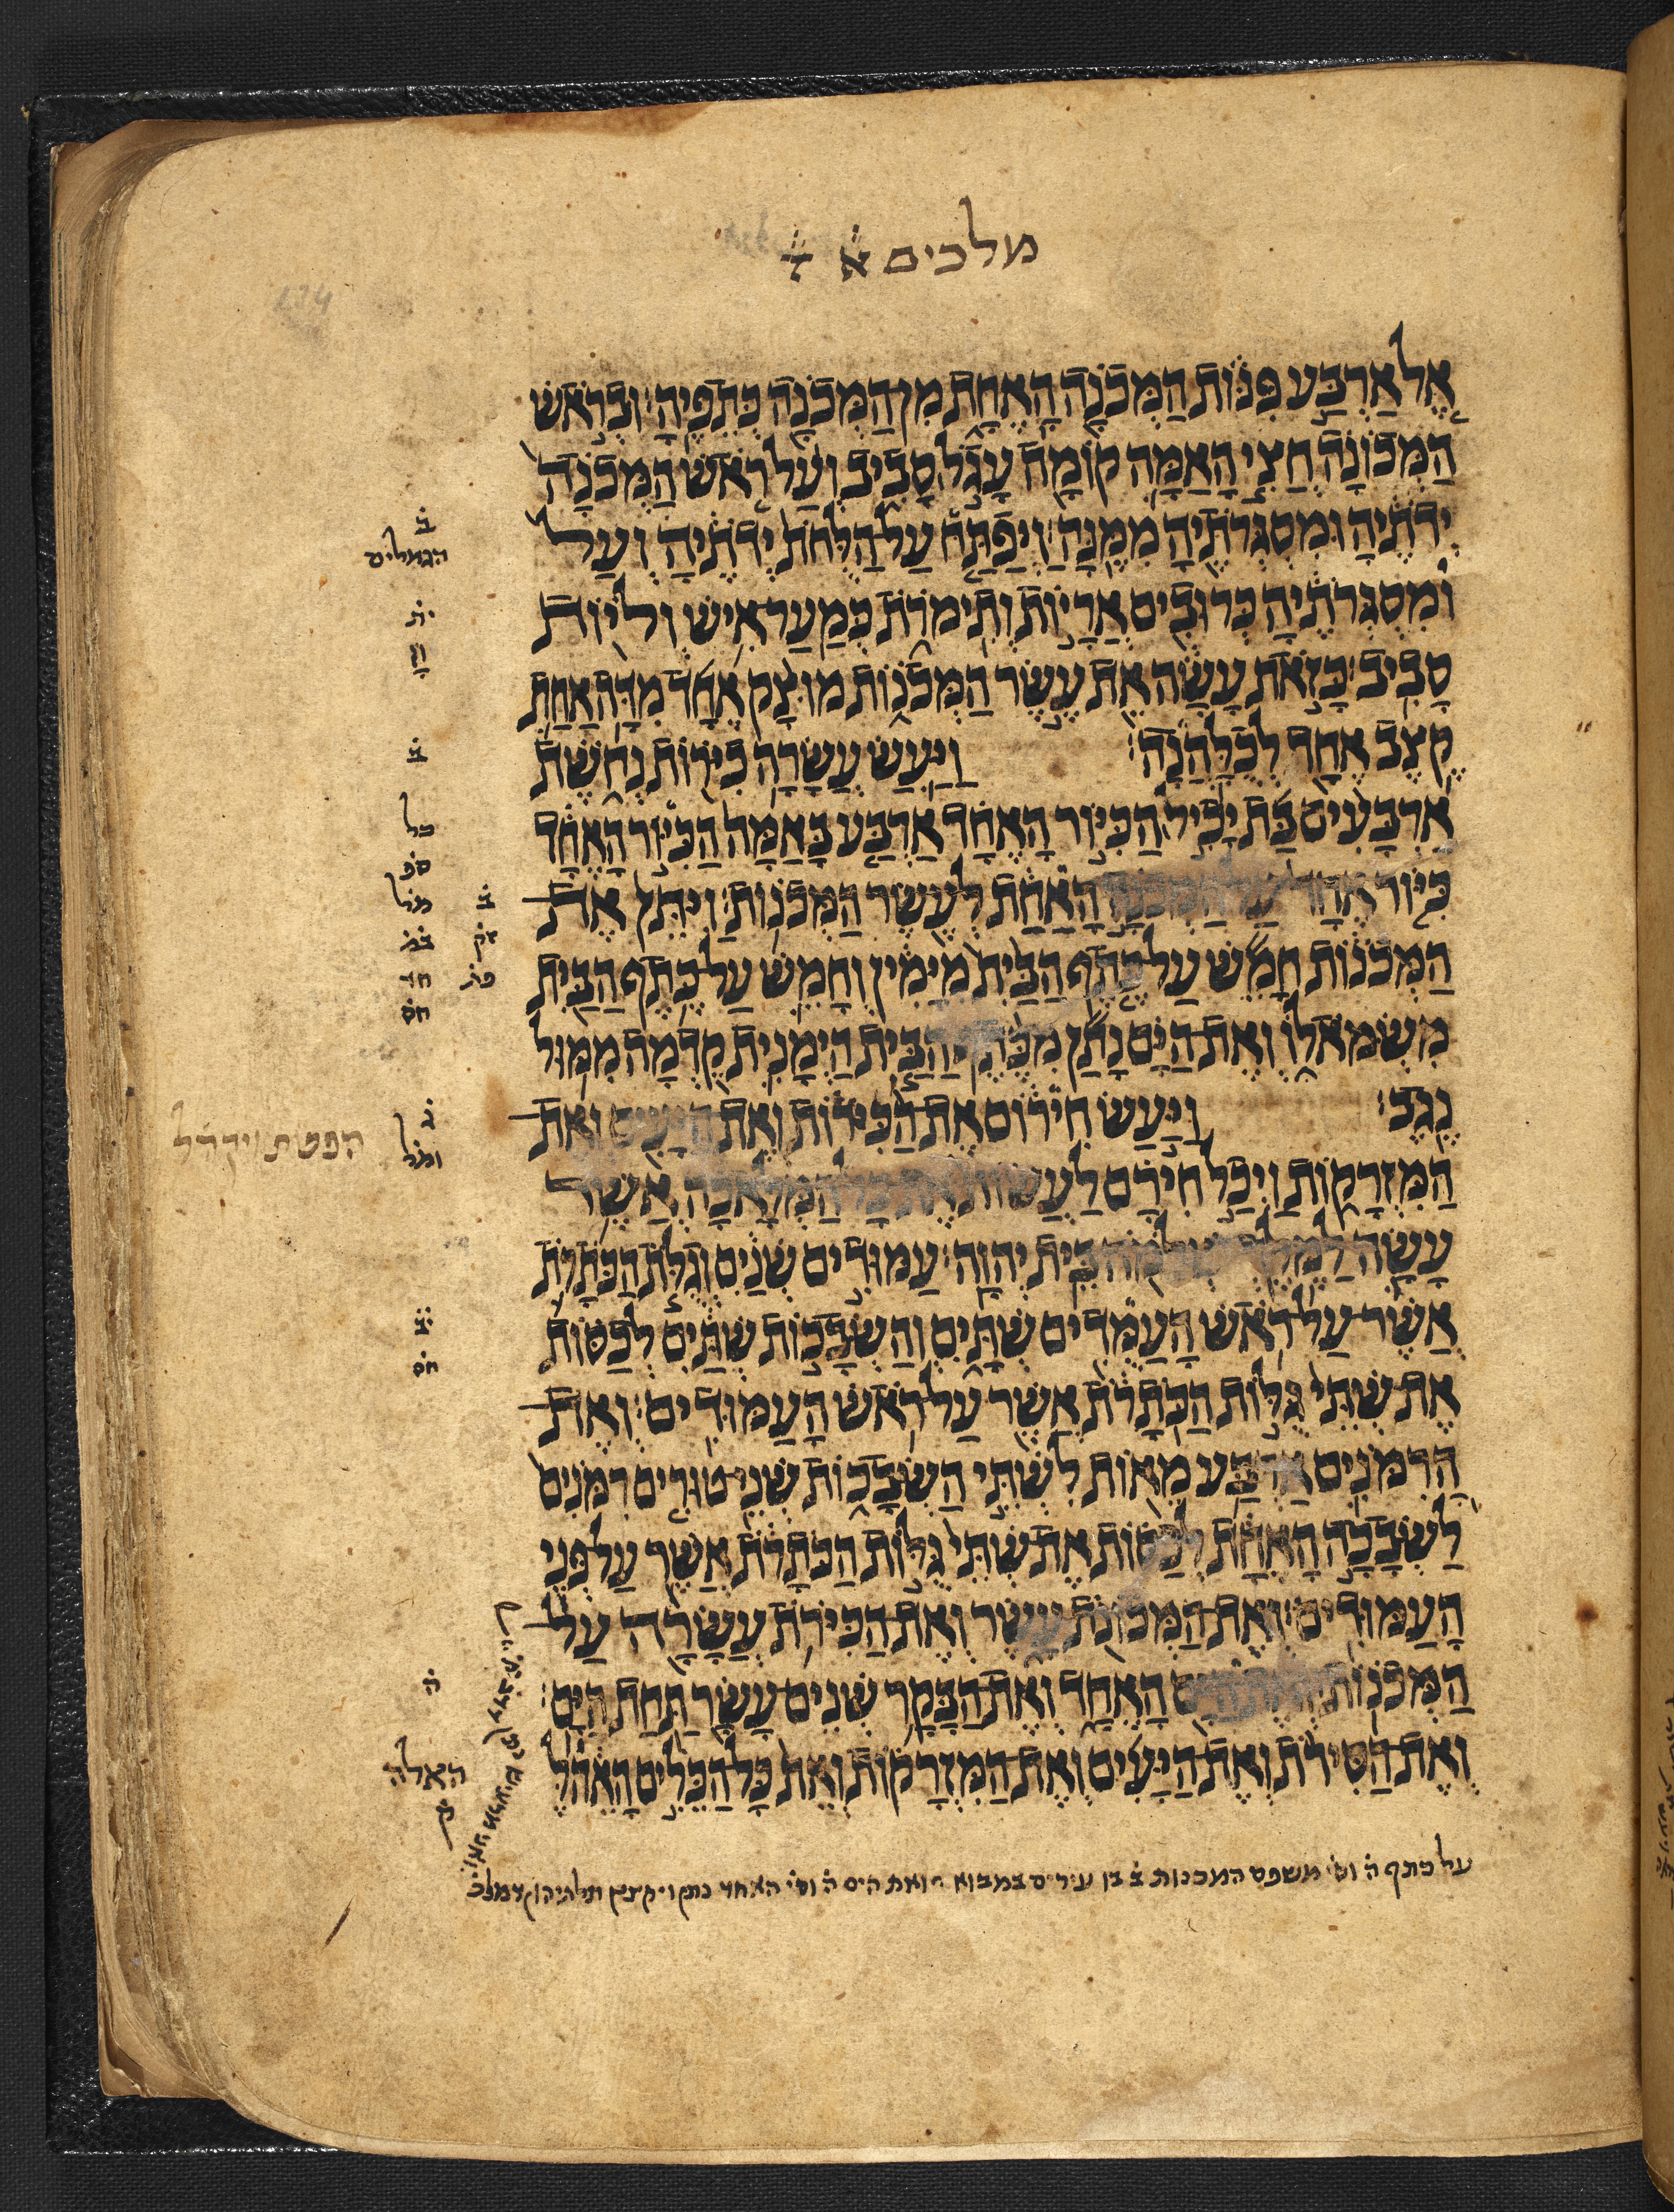 מלכים א ז
אֶל אַרְבַּע פִּנּוֹת הַמְּכֹנָה הָאֶחָת מִן הַמְּכֹנָה כְּתֵפֶיהָ׃ וּבְרֹאשׁ
הַמְּכוֹנָה חֲצִי הָאַמָּה קוֹמָה עָגֹל סָבִיב וְעַל רֹאשׁ הַמְּכֹנָה
יְדֹתֶיהָ וּמִסְגְּרֹתֶיהָ מִמֶּנָּה׃ וַיְפַתַּח עַל הַלֻּחֹת יְדֹתֶיהָ וְעַל
וּמִסְגְּרֹתֶיהָ כְּרוּבִים אֲרָיוֹת וְתִימֹרֹת כְּמַעַר אִישׁ וְלֹיוֹת
סָבִיב׃ כָּזֹאת עָשָׂה אֵת עֶשֶׂר הַמְּכֹנוֹת מוּצָק אֶחָד מִדָּה אַחַת
קֶצֶב אֶחָד לְכֻלָּהְנָה׃ וַיַּעַשׂ עֲשָׂרָה כִיֹּרוֹת נְחֹשֶׁת
אַרְבָּעִים בַּת יָכִיל הַכִּיּוֹר הָאֶחָד אַרְבַּע בָּאַמָּה הַכִּיּוֹר הָאֶחָד
כִּיּוֹר אֶחָד עַל הַמְּכֹנָה הָאַחַת לְעֶשֶׂר הַמְּכֹנוֹת׃ וַיִּתֵּן אֶת
הַמְּכֹנוֹת חָמֵשׁ עַל כֶּתֶף הַבַּיִת מִיָּמִין וְחָמֵשׁ עַל כֶּתֶף הַבַּיִת
מִשְּׂמֹאלוֹ וְאֶת הַיָּם נָתַן מִכֶּתֶף הַבַּיִת הַיְמָנִית קֵדְמָה מִמּוּל
נֶגֶב׃ וַיַּעַשׂ חִירוֹם אֶת הַכִּיֹּרוֹת וְאֶת הַיָּעִים וְאֶת
הַמִּזְרָקוֹת וַיְכַל חִירָם לַעֲשׂוֹת אֶת כָּל הַמְּלָאכָה אֲשֶׁר
עָשָׂה לַמֶּלֶךְ שְׁלֹמֹה בֵּית יְהוָה׃ עַמּוּדִים שְׁנַיִם וְגֻלֹּת הַכֹּתָרֹת
אֲשֶׁר עַל רֹאשׁ הָעַמֻּדִים שְׁתָּיִם וְהַשְּׂבָכוֹת שְׁתַּיִם לְכַסּוֹת
אֶת שְׁתֵּי גֻּלּוֹת הַכֹּתָרֹת אֲשֶׁר עַל רֹאשׁ הָעַמּוּדִים׃ וְאֶת
הָרִמֹּנִים אַרְבַּע מֵאוֹת לִשְׁתֵּי הַשְּׂבָכוֹת שְׁנֵי טוּרִים רִמֹּנִים
לַשְּׂבָכָה הָאֶחָת לְכַסּוֹת אֶת שְׁתֵּי גֻּלּוֹת הַכֹּתָרֹת אֲשֶׁר עַל פְּנֵי
הָעַמּוּדִים׃ וְאֶת הַמְּכוֹנֹת עָשֶׂר וְאֶת הַכִּיֹּרֹת עֲשָׂרָה עַל
הַמְּכֹנוֹת׃ וְאֶת הַיָּם הָאֶחָד וְאֶת הַבָּקָר שְׁנֵים עָשָׂר תַּחַת הַיָּם׃
וְאֶת הַסִּירֹת וְאֶת הַיָּעִים וְאֶת הַמִּזְרָקוֹת וְאֵת כָּל הַכֵּלִים הָאֹהֶל
ב
הגמלים
ית
ב
כל
ב
חס
ג
הפטרת ויקהל
ב
חס
ה
האלה
ק
על כתף ה וס משפט המכנות ב בן עירים במבוא ואת הים ה וס האחד נתן